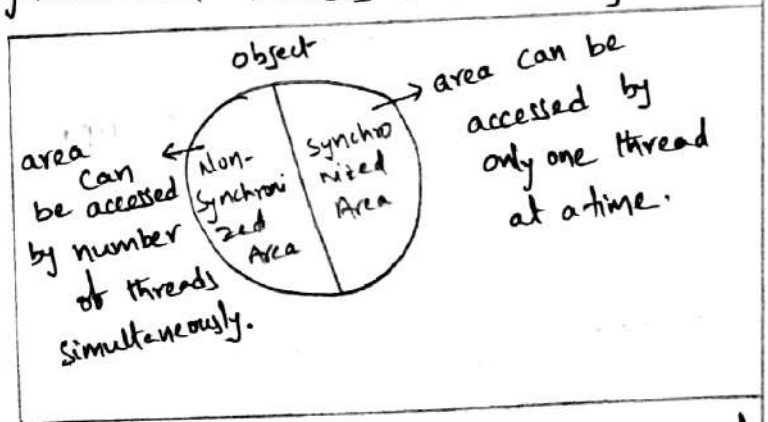 object
area
can
be accessed
by number
of threads
simultaneously.
Non-
Synchroni
zed
Area
Synchro
nized
Area
area can be
accessed by
only one thread
at a time.